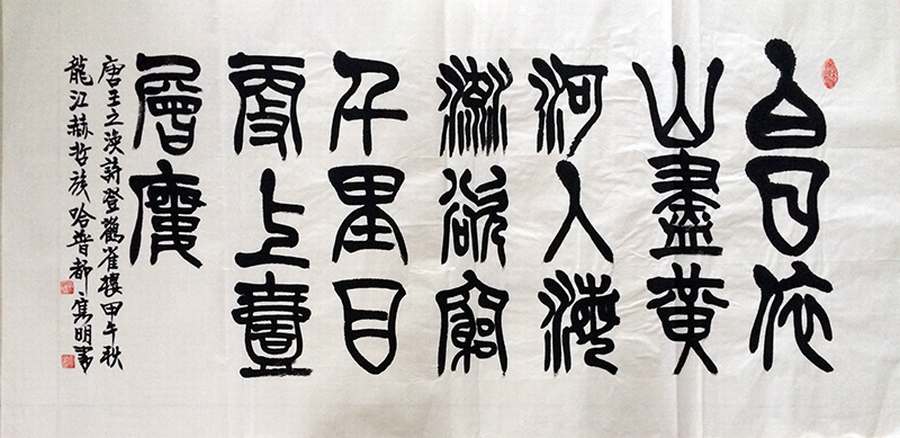 白日依
山盡黄
河入海
流欲窮
千里目
更上壹
層廔
唐王之渙詩登鸛雀樓甲午秋
龍江赫哲族哈普都·雋明書